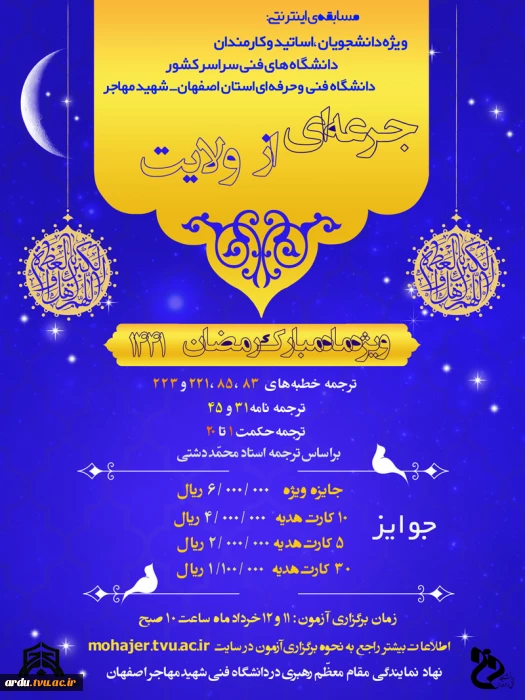 مسابقه‌ی اینترنتی:
ویژه دانشجویان، اساتید و کارمندان
دانشگاه های فنی سراسر کشور
دانشگاه فنی و حرفه ای استان اصفهان - شهید مهاجر
جرعه‌ای از ولایت
ویژه ماه مبارک رمضان ۱۴۴۱
ترجمه خطبه های ۸۳، ۸۵، ۲۲۱ و ۲۲۳
ترجمه نامه ۳۱ و ۴۵
ترجمه حکمت ۱ تا ۲۰
بر اساس ترجمه استاد محمّد دشتی
جوایز
جایزه ویژه ۶/۰۰۰/۰۰۰ ریال
۱۰ کارت هدیه ۴/۰۰۰/۰۰۰ ریال
۵ کارت هدیه ۲/۰۰۰/۰۰۰ ریال
۳۰ کارت هدیه ۱/۱۰۰/۰۰۰ ریال
زمان برگزاری آزمون: ۱۱ و ۱۲ خرداد ماه ساعت ۱۰ صبح
اطلاعات بیشتر راجع به نحوه برگزاری آزمون در سایت mohajer.tvu.ac.ir
نهاد نمایندگی مقام معظّم رهبری در دانشگاه فنی شهید مهاجر اصفهان
ardu.tvu.ac.ir